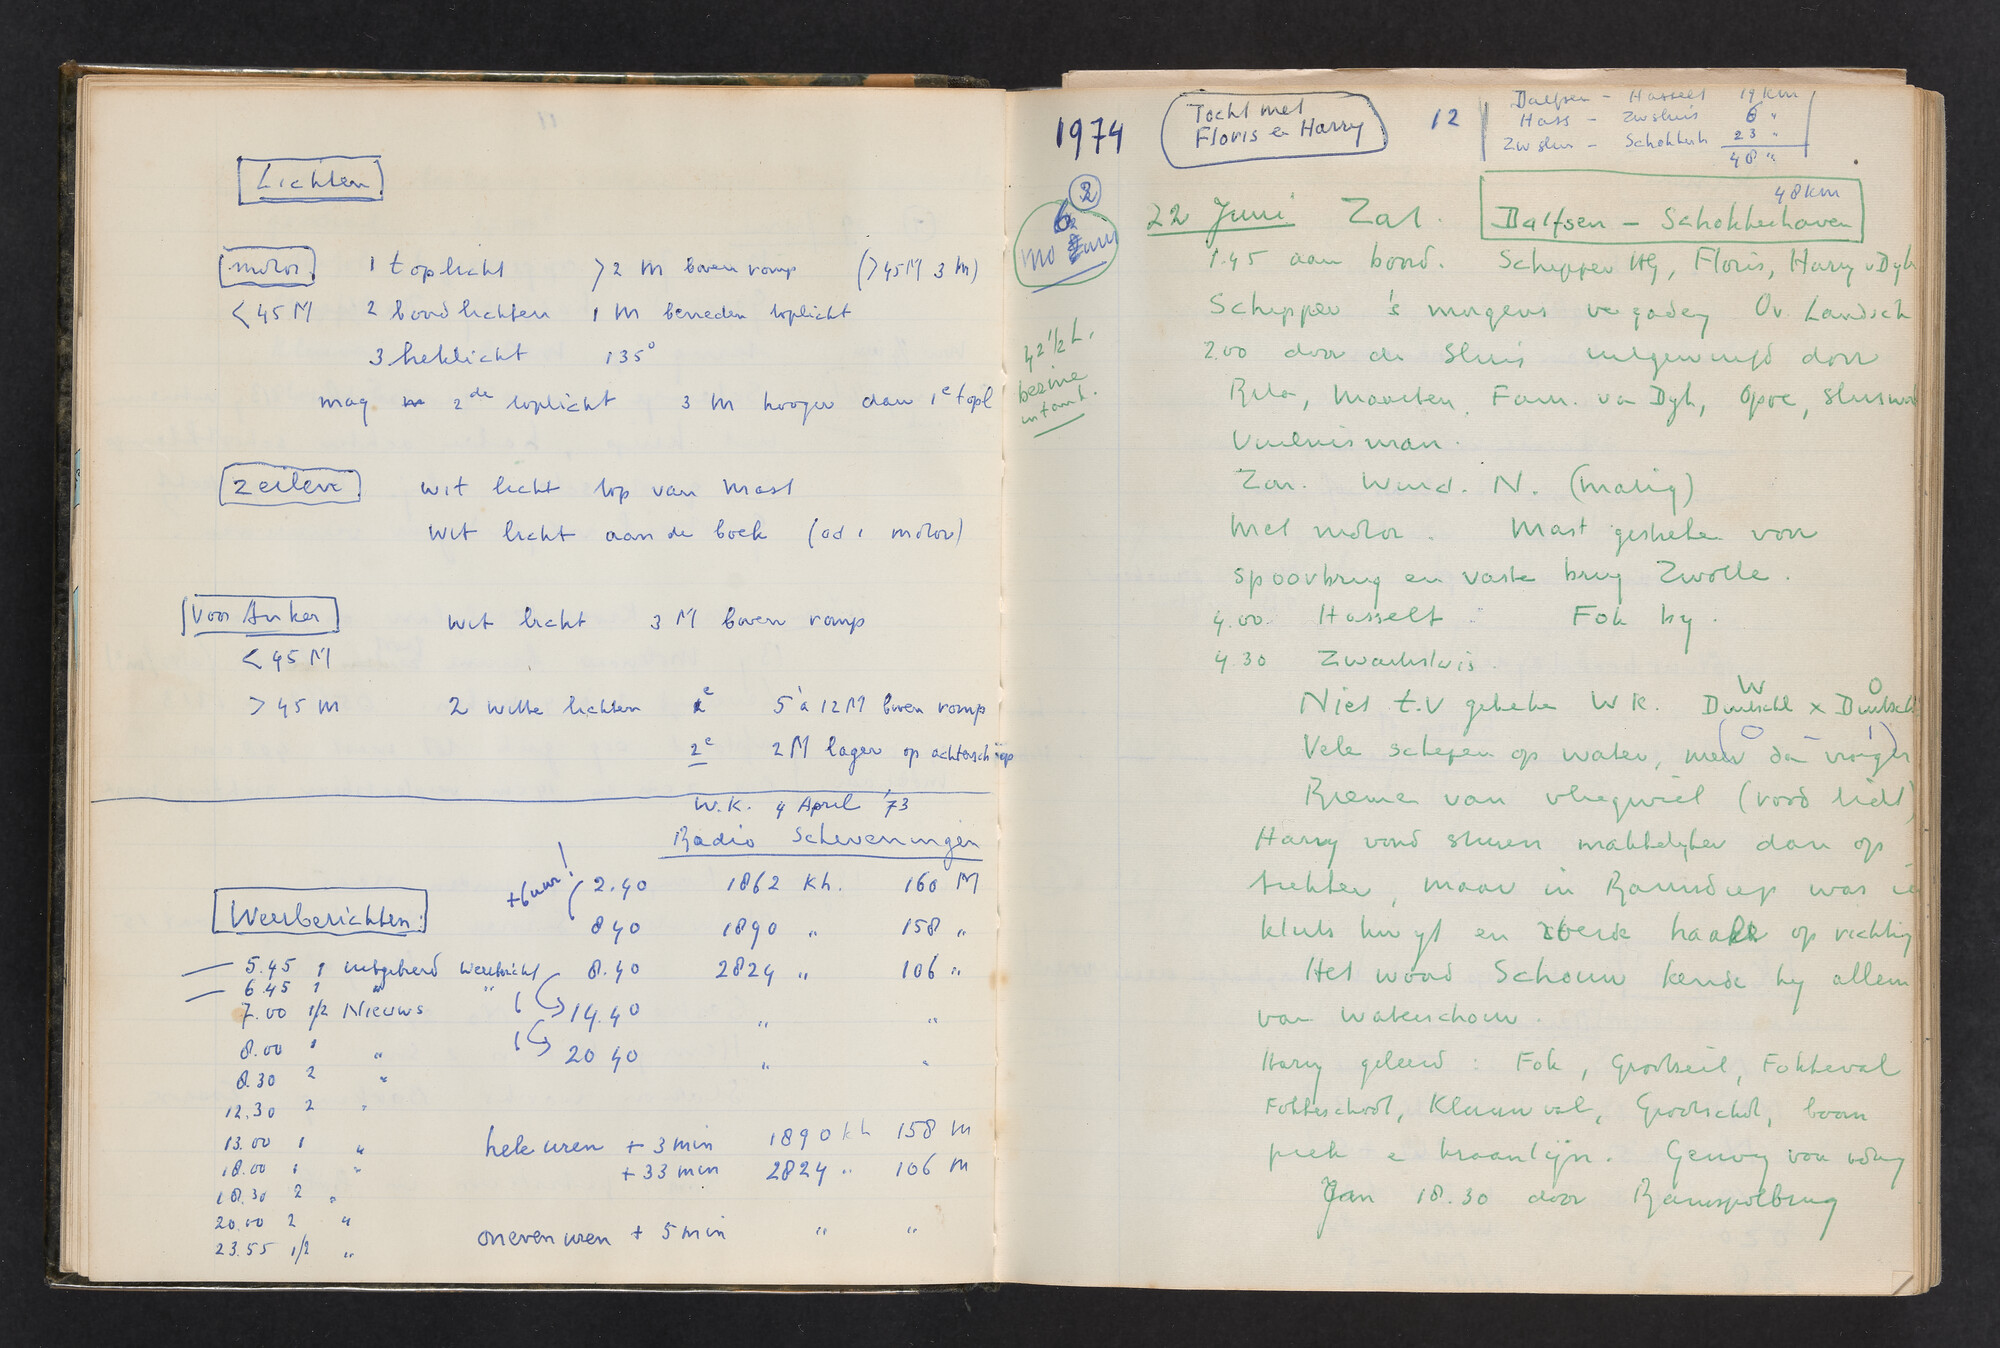 Lichten
motor 1 toplicht > 2 M boven romp (> 45 M 3 M)
< 45 M 2 boordlichten 1 M beneden toplicht
3 heklicht 135°
mag 2de toplicht 3 M hooger dan 1e topl
Zeilen wit licht top van mast
wit licht aan de boeg (als motor)
Voor Anker wit licht 3 M boven romp
< 45 M
> 45 M 2 witte lichten 1e 5 à 12 M boven romp
2e 2 M lager op achterschip
W.K. 4 April '73
Radio Scheveningen
+6 uur! 2.40 1862 Kh. 160 M
Weerberichten: 8 40 1890 " 158 "
5.45 1 uitgebreid weerbericht 8.40 2824 " 106 "
6.45 1 " "
7.00 1/2 Nieuws 14.40 " "
8.00 1 " 20 40 " "
8.30 2 "
12.30 2 "
13.00 1 " hele uren + 3 min 1890 kh 158 M
18.00 1 " + 33 min 2824 " 106 M
18.30 2 "
20.00 2 "
23.55 1/2 " oneven uren + 5 min " "
1974 Tocht met
Floris en Harry
12
Dalfsen - Hasselt 19 km
Hass - Zwsluis 6 "
Zwsluis - Schokkerh 23 "
48 "
2
42 1/2 L.
benzine
in tank.
48 km
22 Juni Zat. Dalfsen - Schokkerhaven
1.45 aan boord. Schipper Hg, Floris, Harry v Dyk
Schipper 's morgens vergaderg Ov. Landsch
2.00 door de Sluis uitgewuifd door
Rita, Maarten, Fam. van Dyk, Opoe, sluisw
Vuilnisman.
Zon. Wind. N. (matig)
Met motor. Mast gestreken voor
spoorbrug en vaste brug Zwolle.
4.00. Hasselt. Fok by.
4.30 Zwartsluis.
Niet t.v gekeken WK. W Duitschl x O Duitschl
(0 - 1)
Vele schepen op water, meer dan vroeger
Riemen van vliegwiel (rood licht)
Harry vond sturen makkelyker dan op
trekker, maar in Ramsdiep was ie
kluts kwyt en stuurde haaks op richting
Het woord Schouw kende hy alleen
van Waterschouw.
Harry geleerd: Fok, Grootzeil, Fokkeval
Fokkeschoot, Klauwval, Grootschoot, boom
piek en kraanlijn. Genoeg voor vandaag
Jan 18.30 door Ramspolbrug